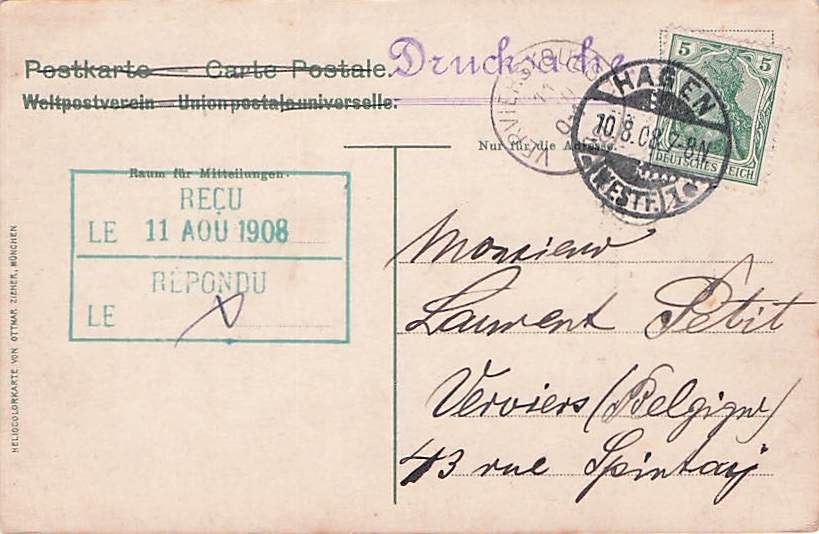 Postkarte — Carte Postale.
Weltpostverein – Unionpostalauniverselle.
Drucksache
VERVIERS
11
HAGEN
10.8.08.7-8N.
(WESTF.) 1
5 5
DEUTSCHES REICH
Nur für die Adresse.
Raum für Mitteilungen.
REÇU
LE 11 AOU 1908
RÉPONDU
LE
Monsieur
Laurent Petit
Verviers (Belgique)
43 rue Spintay
HELIOCOLORKARTE VON OTTMAR ZIEHER, MÜNCHEN